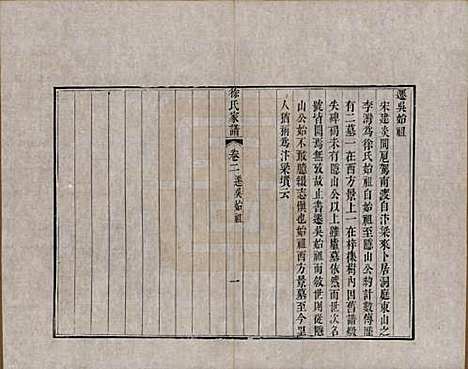 遷吳始祖
宋建炎間扈駕南渡自汴梁來卜居洞庭東山之
李灣為徐氏始祖自始祖至隱山公約計數傳僅
有二墓一在西方景上一在梓樹內因舊譜燬
失碑碣未有隱山公以上雖虛墓依然而世次諱
號皆闕焉無攷故止書遷吳始祖而敘世則從隱
山公始不敢臆綴志慎也始祖西方景墓至今里
人猶稱為汴梁墳云
徐氏家譜
卷二 遷吳始祖
一